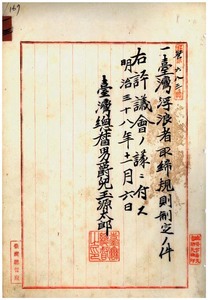 一臺灣浮浪者取締規則制定ノ件
右評議會ノ議ニ付ス
明治三十八年十一月六日
臺灣總督男爵兒玉源太郎
臺灣總督府